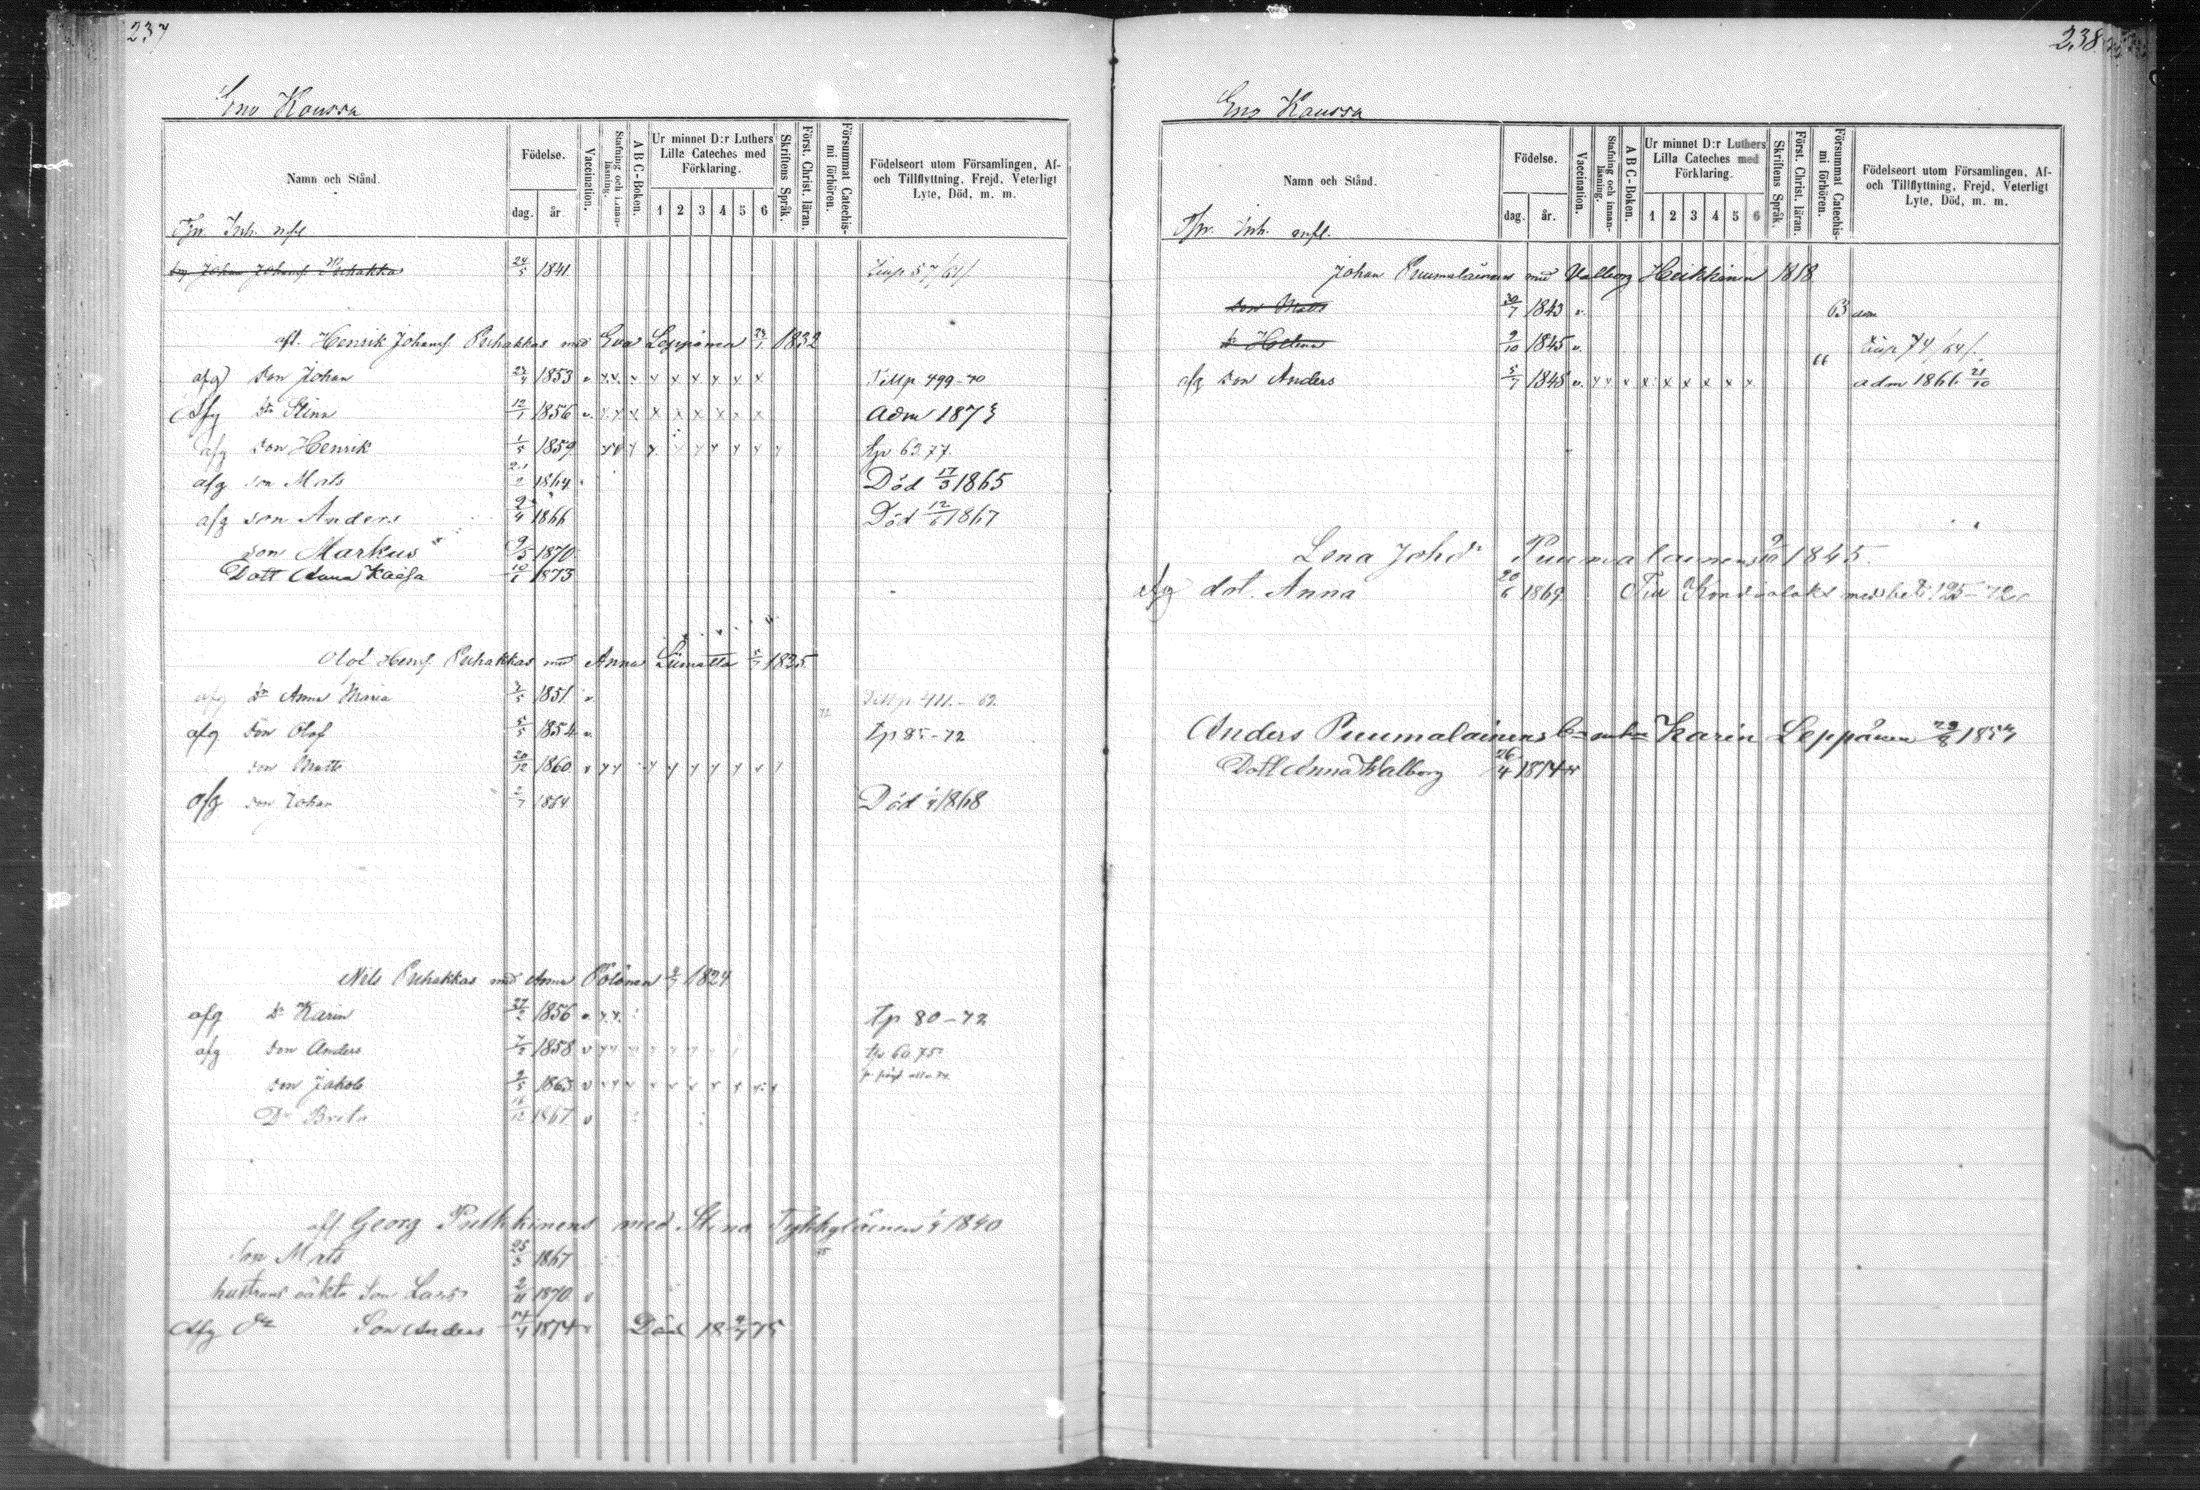 237
Eno Kaussa
Namn och Stånd.
Födelse.
dag.
år
Vaccination.
Stafning och innan-
läsning.
A B C-Boken.
Ur minnet D:r Luthers
Lilla Cateches med
Förklaring.
1 2 3 4 5 6
Skriftens Språk.
Först. Christ. läran.
Försummat Catechis-
mi förhören.
Födelseort utom Församlingen, Af-
och Tillflyttning, Frejd, Veterligt
Lyte, Död, m. m.
Johan Johans. Puhakka 24/5 1841
afl. Henrik Johans. Puhakkas med Eva Leppänen 23/1 1832
afg Son Johan 23/4 1853 v x x x x x x x x x 499-70
afg Dr Stina 12/1 1856 v. x x x x x x x x x Adm 1873
afg Son Henrik 1/5 1859 tp 63.77.
afg son Mats 1864 Död 17/3 1865
afg son Anders 1866 Död 12/6 1867
son Markus 9/5 1870
Dott Anna Kaisa 10/1 1873
Olof Hens. Puhakkas med Anna Liimatta 5/7 1835
afg Dr Anna Maria 1851 v
afg Son Olof 5/5 1854 v. tp 85-72
son Matts 20/12 1860
afg son Johan 2/7 1864 Död 1/4 1868
Nils Puhakkas med Anna Pölönen 2/7 1824
afg Dr Karin 27/2 1856 v. x x tp 80-72
afg Son Anders 1858 v tp 60.75
Son Jakob 1863
Dr Brita 16/12 1867 v
afl Georg Pulkkinens med Stina Tykkyläinen 1840
Son Mats 25/5 1867
hustruns oäkta Son Lars 2/11 1870
Afg Dr Son Anders 1874 Död 18 75
238
Eno Kaussa
Namn och Stånd.
Födelse.
dag.
år.
Vaccination.
Stafning och innan-
läsning.
A B C-Boken.
Ur minnet D:r Luthers
Lilla Cateches med
Förklaring.
1 2 3 4 5 6
Skriftens Språk.
Först. Christ. läran.
Försummat Catechis-
mi förhören.
Födelseort utom Församlingen, Af-
och Tillflyttning, Frejd, Veterligt
Lyte, Död, m. m.
Johan Puumalainens med Valborg Heikkinen 1818
Son Mats 30/7 1843 v. 63 adm
Dr Helena 9/10 1845 v. 74/64
afg Son Anders 5/7 1848 v. x x x x x x x x x adm 1866 21/10
Lena Johdr Puumalainens 9/10 1845.
Afg dot. Anna 20/6 1869 Till Kondiolaks med bet: 125-72
Anders Puumalainens Karin Leppänen 1854
Dott Anna Walborg 26/4 1874